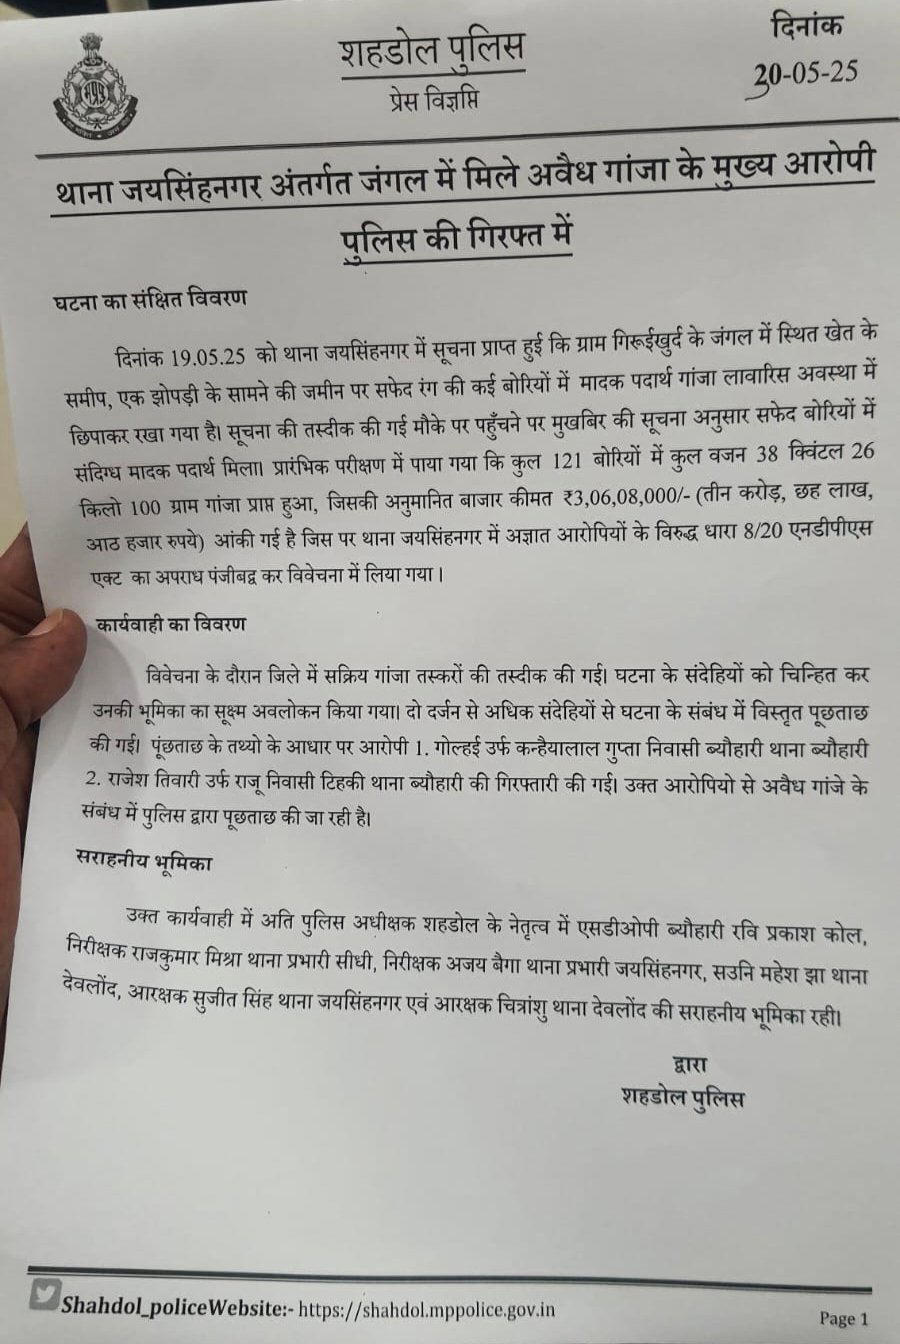 शहडोल पुलिस
प्रेस विज्ञप्ति
दिनांक
30-05-25
थाना जयसिंहनगर अंतर्गत जंगल में मिले अवैध गांजा के मुख्य आरोपी
पुलिस की गिरफ्त में
घटना का संक्षित विवरण
दिनांक 19.05.25 को थाना जयसिंहनगर में सूचना प्राप्त हुई कि ग्राम गिरूईखुर्द के जंगल में स्थित खेत के
समीप, एक झोपड़ी के सामने की जमीन पर सफेद रंग की कई बोरियों में मादक पदार्थ गांजा लावारिस अवस्था में
छिपाकर रखा गया है। सूचना की तस्दीक की गई मौके पर पहुँचने पर मुखबिर की सूचना अनुसार सफेद बोरियों में
संदिग्ध मादक पदार्थ मिला। प्रारंभिक परीक्षण में पाया गया कि कुल 121 बोरियों में कुल वजन 38 क्विंटल 26
किलो 100 ग्राम गांजा प्राप्त हुआ, जिसकी अनुमानित बाजार कीमत ₹3,06,08,000/- (तीन करोड़, छह लाख,
आठ हजार रुपये) आंकी गई है जिस पर थाना जयसिंहनगर में अज्ञात आरोपियों के विरुद्ध धारा 8/20 एनडीपीएस
एक्ट का अपराध पंजीबद्व कर विवेचना में लिया गया।
कार्यवाही का विवरण
विवेचना के दौरान जिले में सक्रिय गांजा तस्करों की तस्दीक की गई। घटना के संदेहियों को चिन्हित कर
उनकी भूमिका का सूक्ष्म अवलोकन किया गया। दो दर्जन से अधिक संदेहियों से घटना के संबंध में विस्तृत पूछताछ
की गई। पूंछताछ के तथ्यो के आधार पर आरोपी 1. गोल्हई उर्फ कन्हैयालाल गुप्ता निवासी ब्यौहारी थाना ब्यौहारी
2. राजेश तिवारी उर्फ राजू निवासी टिहकी थाना ब्यौहारी की गिरफ्तारी की गई। उक्त आरोपियो से अवैध गांजे के
संबंध में पुलिस द्वारा पूछताछ की जा रही है।
सराहनीय भूमिका
उक्त कार्यवाही में अति पुलिस अधीक्षक शहडोल के नेतृत्व में एसडीओपी ब्यौहारी रवि प्रकाश कोल,
निरीक्षक राजकुमार मिश्रा थाना प्रभारी सीधी, निरीक्षक अजय बैगा थाना प्रभारी जयसिंहनगर, सउनि महेश झा थाना
देवलोंद, आरक्षक सुजीत सिंह थाना जयसिंहनगर एवं आरक्षक चित्रांशु थाना देवलोंद की सराहनीय भूमिका रही।
द्वारा
शहडोल पुलिस
Shahdol_policeWebsite:- https://shahdol.mppolice.gov.in
Page 1